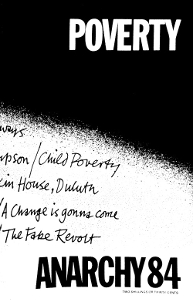 POVERTY
ways
mpson/Child Poverty
kin House, Duluth
/A Change is gonna come
/The Fake Revolt
ANARCHY 84